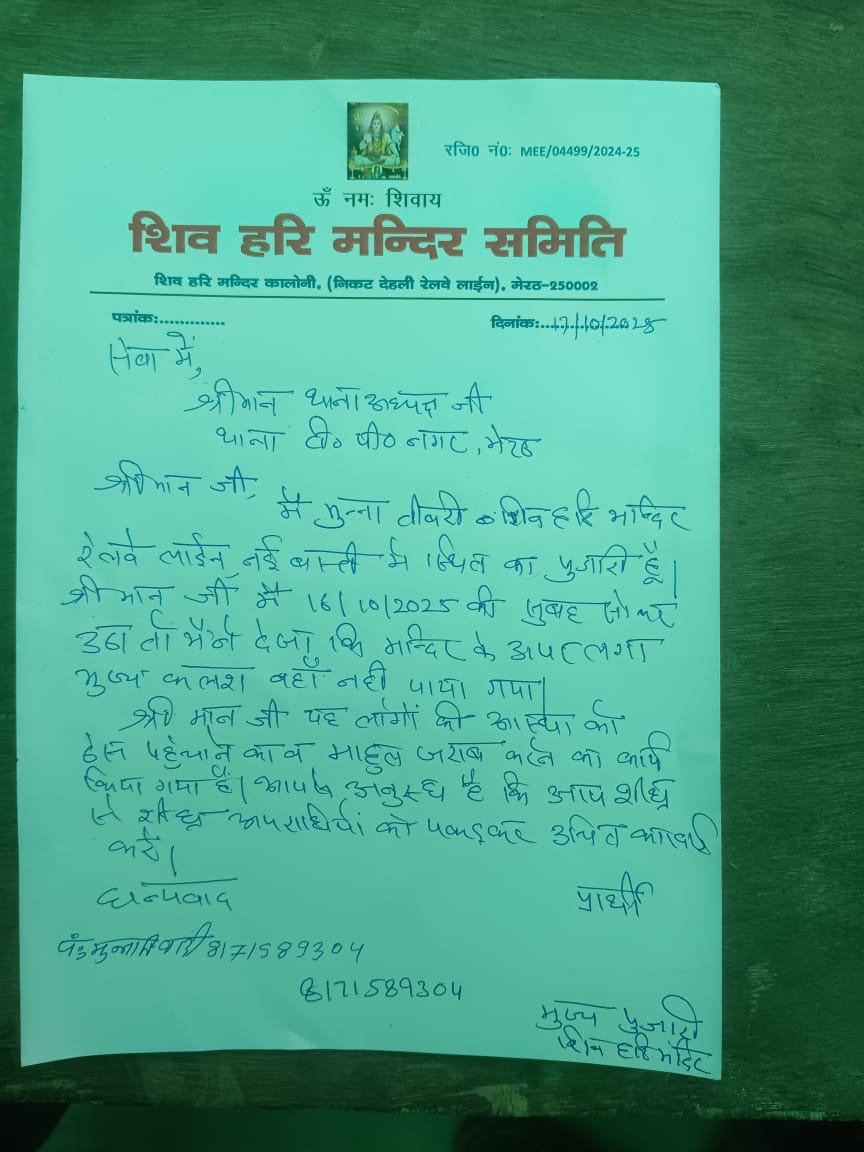 रजि0 नं0: MEE/04499/2024-25
ऊँ नमः शिवाय
शिव हरि मन्दिर समिति
शिव हरि मन्दिर कालोनी, (निकट देहली रेलवे लाईन), मेरठ-250002
पत्रांक:.............
दिनांक:...17/10/2025
सेवा में,
श्रीमान थाना अध्यक्ष जी
थाना टी० पी० नगर, मेरठ
श्रीमान जी,
मैं मुन्ना तीवारी शिव हरि मन्दिर
रेलवे लाईन, नई बस्ती में स्थित का पुजारी हूँ।
श्री मान जी मैं 16/10/2025 की सुबह सोकर
उठा तो मैंने देखा कि मन्दिर के ऊपर लगा
मुख्य कलश वहाँ नही पाया गया।
श्री मान जी यह लोगों की आस्था को
ठेस पहुंचाने का व माहुल खराब करने का कार्य
किया गया है। आपसे अनुरूध है कि आप शीध्र
से शीध्र अपराधियों को पकड़कर उचित कारवाई
करें।
धन्यवाद
प्रार्थी
पं० मुन्ना तिवारी 8171589304
8171589304
मुख्य पुजारी
शिव हरि मंदिर